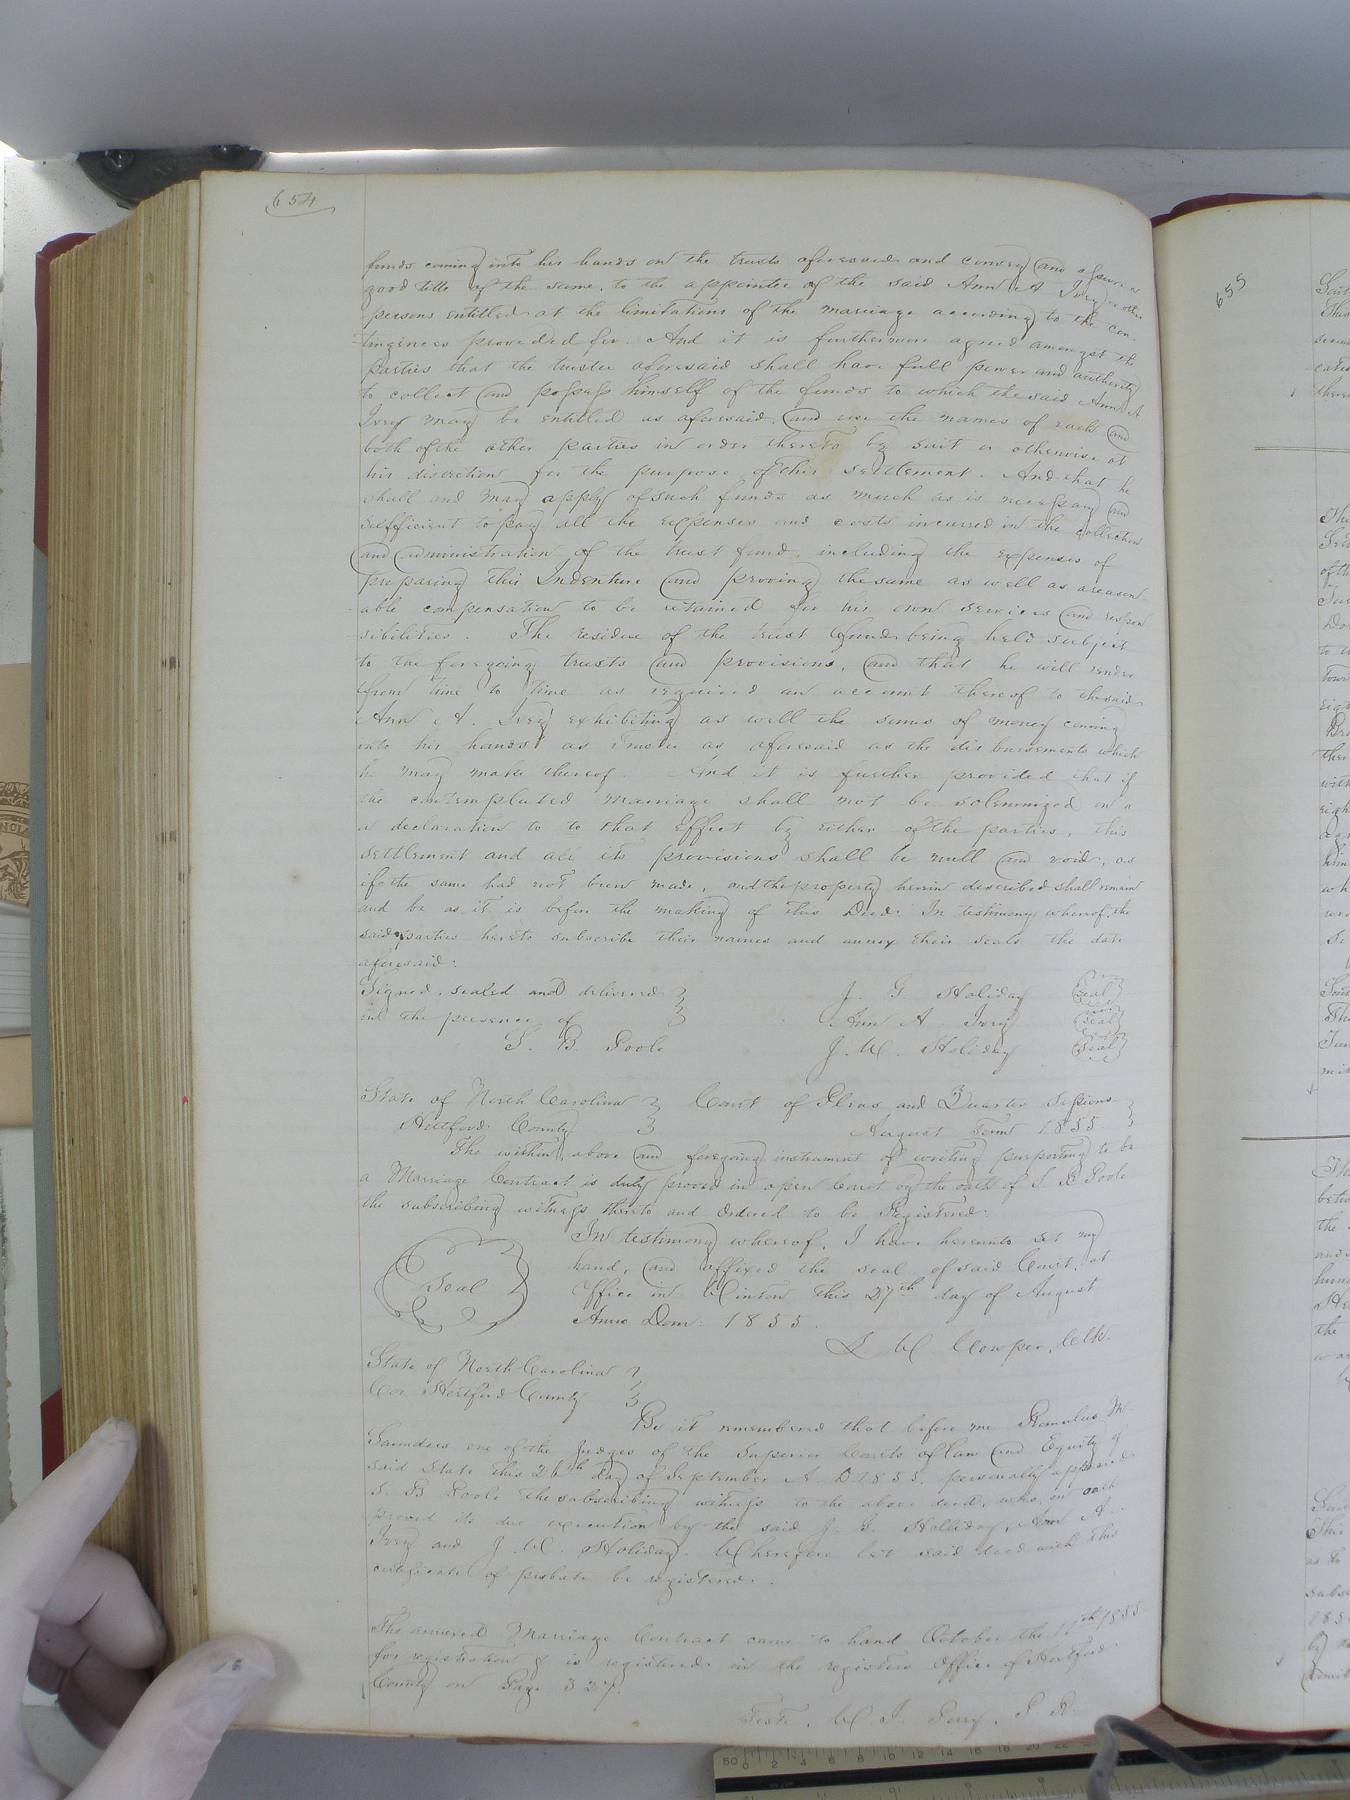 654
funds coming into his hands on the trusts aforesaid and convey and assure a
good title of the same, to the appointee of the said Ann A Ivey or other
persons entitled at the limitations of the marriage according to the con-
tingences provided for. And it is furthermore agreed amongst the
parties that the trustee aforesaid shall have full power and authority
to collect and possess himself of the funds to which the said Ann A
Ivey may be entitled as aforesaid, and use the names of each and
both of the other parties in order thereto by suit or otherwise at
his discretion for the purpose of this settlement. And that he
shall and may apply of such funds as much as is necessary and
sufficient to pay all the expenses and costs incurred in the collection
and administration of the trust fund, including the expenses of
preparing this Indenture and proving the same as well as a reason-
able compensation to be retained for his own services and respon
sibilities. The residue of the trust fund being held subject
to the foregoing trusts and provisions, and that he will render
from time to time as required an account thereof to the said
Ann A. Ivey exhibiting as well the sums of money coming
into his hands as Trustee as aforesaid as the disbursements which
he may make thereof. And it is further provided that if
the contemplated marriage shall not be solemnized on a
a declaration to to that effect by either of the parties, this
settlement and all its provisions shall be null and void, as
if the same had not been made, and the property herein described shall remain
and be as it is before the making of this Deed. In testimony whereof, the
said parties hereto subscribe their names and annex their seals the date
aforesaid.
Signed, sealed and delivered J. G. Holiday Seal
in the presence of Ann A. Ivey Seal
S. B. Poole J. W. Holiday Seal
State of North Carolina Court of Pleas and Quarter Sessions
Hertford County August Term 1855
The within, above and foregoing instrument of writing purporting to be
a Marriage Contract is duly proved in open Court by the oath of S B Poole
the subscribing witness thereto and ordered to be Registered.
In testimony whereof, I have hereunto set my
hand, and affixed the seal of said Court, at
Seal Office in Winton this 27th day of August
Anno Dom: 1855.
L W Cowper, Clk.
State of North Carolina
Hertford County
Be it remembered that before me Romulus M
Saunders one of the Judges of the Superior Courts of law and Equity of
said State this 26th day of September A D 1855, personally appeared
S. B Poole the subscribing witness to the above deed, who, on oath
proved its due execution by the said J. G. Holliday, Ann A
Ivey and J. W. Holiday. Wherefore let said deed with this
certificate of probate be registered.
The annexed Marriage Contract came to hand October the 1855
for registration & is registered in the registers Office of Hertford
County on Page 327.
Teste, W J. Perry, P R.
655